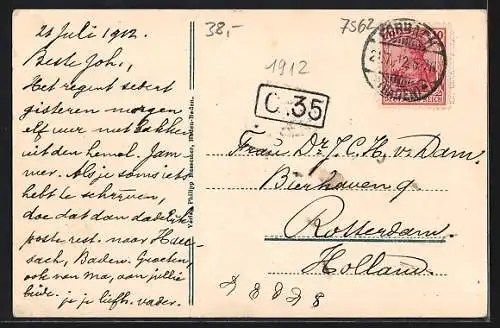 21 Juli 1912.
Beste Joh.,
Het regent sedert
gisteren morgen
elf uur met bakken
uit den hemel. Jam-
mer. Als je soms iets
hebt te schrijven,
doe dat dan dadelijk
poste rest. naar Hau-
sach, Baden. Groeten,
ook van Ma, aan jullie
beide. je je liefh. vader.
Verlag Philipp Baden-Baden.
38,-
7562
1912
C. 35
FORBACH
10
REICH
Frau Dr. J. C. H. v. Dam.
Bierhaven 9
Rotterdam.
Holland.